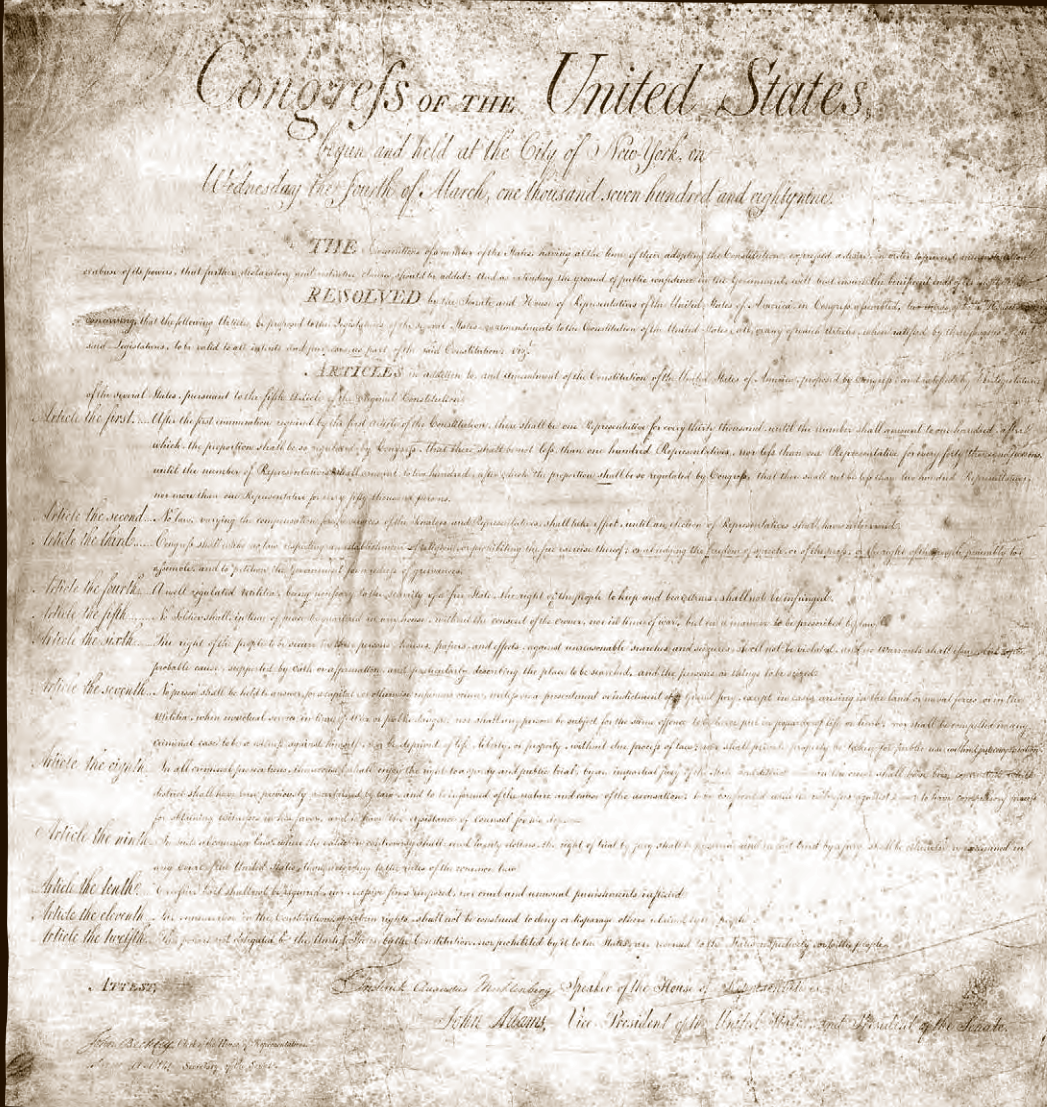 Congreſs OF THE United States,
begun and held at the City of New-York, on
Wednesday the fourth of March, one thousand seven hundred and eighty nine.
THE Conventions of a number of the States, having at the time of their adopting the Constitution, expressed a desire, in order to prevent
or abuse of its powers, that further declaratory and restrictive clauses should be added: And as extending the ground of public confidence in the Government, will best insure the beneficent ends of
RESOLVED by the Senate and House of Representatives of the United States of America in Congreſs aſsembled, two
concurring, that the following Articles be proposed to the Legislatures of the several States, as amendments to the Constitution of the United States, all, or any of which Articles, when ratified by
said Legislatures, to be valid to all intents and purposes, as part of the said Constitution; viz.
ARTICLES in addition to, and amendment of the Constitution of the United States of America, proposed by Congreſs and ratified by the Legislatures
of the several States, pursuant to the fifth Article of the original Constitution.
Article the first. After the first enumeration required by the first Article of the Constitution, there shall be one Representative for every thirty thousand, until the number shall amount to one hundred, after
which, the proportion shall be so regulated by Congreſs, that there shall be not leſs than one hundred Representatives, nor leſs than one Representative for every forty thousand persons,
until the number of Representatives shall amount to two hundred, after which the proportion shall be so regulated by Congreſs, that there shall not be leſs than two hundred Representatives,
nor more than one Representative for every fifty thousand persons.
Article the second. No law, varying the compensation for the services of the Senators and Representatives, shall take effect, until an election of Representatives shall have intervened.
Article the third. Congreſs shall make no law respecting an establishment of religion, or prohibiting the free exercise thereof; or abridging the freedom of speech, or of the preſs; or the right of the people peaceably to
aſsemble, and to petition the Government for a redreſs of grievances.
Article the fourth. A well regulated Militia, being neceſsary to the security of a free State, the right of the people to keep and bear Arms, shall not be infringed.
Article the fifth. No Soldier shall, in time of peace be quartered in any house, without the consent of the owner, nor in time of war, but in a manner to be prescribed by law.
Article the sixth. The right of the people to be secure in their persons, houses, papers, and effects, against unreasonable searches and seizures, shall not be violated, and no warrants shall iſsue, but upon
probable cause, supported by oath or affirmation, and particularly describing the place to be searched, and the persons or things to be seized.
Article the seventh. No person shall be held to answer for a capital, or otherwise infamous crime, unleſs on a presentment or indictment of a Grand Jury, except in cases arising in the land or naval forces, or in the
Militia, when in actual service in time of War or public danger; nor shall any person be subject for the same offence to be twice put in jeopardy of life or limb; nor shall be compelled in any
criminal case to be a witneſs against himself, nor be deprived of life, liberty, or property, without due proceſs of law; nor shall private property be taken for public use, without just compensation.
Article the eighth. In all criminal prosecutions, the accused shall enjoy the right to a speedy and public trial, by an impartial jury of the State and district wherein the crime shall have been committed, which
district shall have been previously ascertained by law, and to be informed of the nature and cause of the accusation; to be confronted with the witneſses against him; to have compulsory proceſs
for obtaining witneſses in his favor, and to have the aſsistance of counsel for his defence.
Article the ninth. In suits at common law, where the value in controversy shall exceed twenty dollars, the right of trial by jury shall be preserved, and no fact tried by a jury shall be otherwise re-examined in
any Court of the United States, than according to the rules of the common law.
Article the tenth. Exceſsive bail shall not be required, nor exceſsive fines imposed, nor cruel and unusual punishments inflicted.
Article the eleventh. The enumeration in the Constitution, of certain rights, shall not be construed to deny or disparage others retained by the people.
Article the twelfth. The powers not delegated to the United States by the Constitution, nor prohibited by it to the States, are reserved to the States respectively, or to the people.
ATTEST,
Frederick Augustus Muhlenberg Speaker of the House of Representatives.
John Adams, Vice-President of the United States, and President of the Senate.
John Beckley, Clerk of the House of Representatives.
Secretary of the Senate.